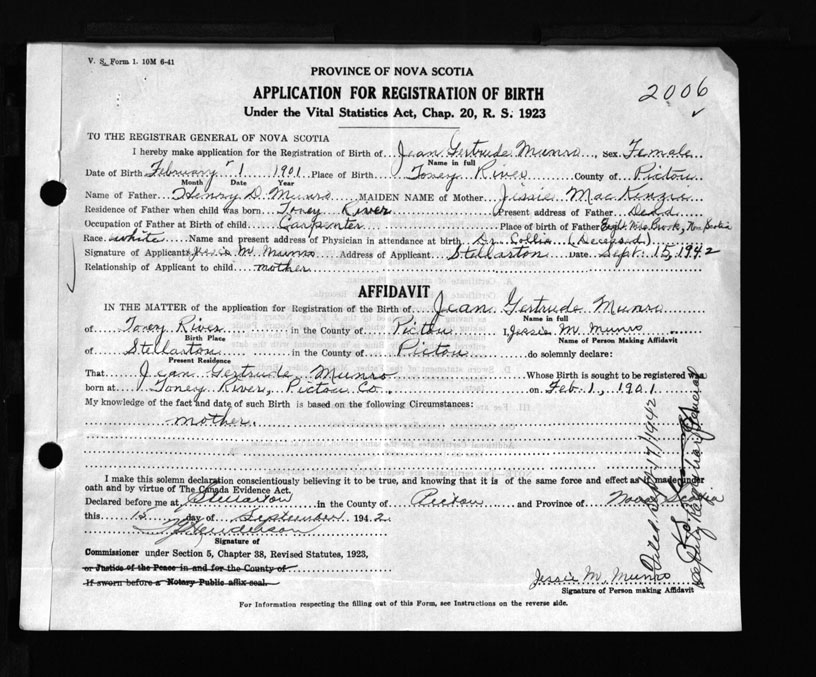 V. S. Form 1. 10M 6-41
PROVINCE OF NOVA SCOTIA
APPLICATION FOR REGISTRATION OF BIRTH
Under the Vital Statistics Act, Chap. 20, R. S. 1923
2006
TO THE REGISTRAR GENERAL OF NOVA SCOTIA
I hereby make application for the Registration of Birth of Jean Gertrude Munro, Sex Female
Name in full
Date of Birth February 1 1901 Place of Birth Toney River County of Pictou
Month Date Year
Name of Father Henry D. Munro MAIDEN NAME of Mother Jessie MacKenzie
Residence of Father when child was born Toney River Present address of Father Dead
Occupation of Father at Birth of child Carpenter Place of birth of Father Eight Mile Brook, Nova Scotia
Race white Name and present address of Physician in attendance at birth Dr. Collie (Deceased)
Signature of Applicant Jessie M. Munro Address of Applicant Stellarton Date Sept. 15, 1942
Relationship of Applicant to child mother
AFFIDAVIT
IN THE MATTER of the application for Registration of the Birth of Jean Gertrude Munro
Name in full
of Toney River in the County of Pictou I, Jessie M. Munro
Birth Place Name of Person Making Affidavit
of Stellarton in the County of Pictou do solemnly declare:
Present Residence
That Jean Gertrude Munro Whose Birth is sought to be registered was
born at Toney River, Pictou Co. on Feb. 1, 1901
My knowledge of the fact and date of such Birth is based on the following Circumstances:
mother.
I make this solemn declaration conscientiously believing it to be true, and knowing that it is of the same force and effect as if made under
oath and by virtue of The Canada Evidence Act.
Declared before me at Stellarton in the County of Pictou and Province of Nova Scotia
this 15 day of September 1942
Henderson
Signature of
Commissioner under Section 5, Chapter 38, Revised Statutes, 1923,
or Justice of the Peace in and for the County of
If sworn before a Notary Public affix seal.
Jessie M. Munro
Signature of Person making Affidavit
For Information respecting the filling out of this Form, see Instructions on the reverse side.
Filed 17/1942
Deputy Registrar General